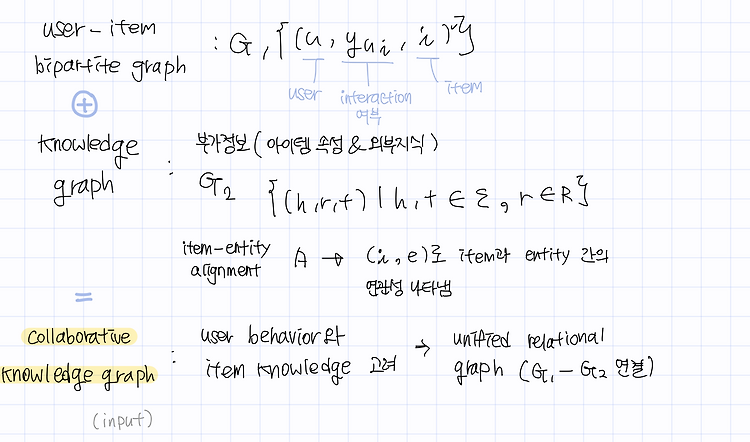 user-item
bipartite graph
: G, {(u, yui, i)}
user
interaction
여부
item
+
knowledge
graph
:
부가정보 (아이템 속성 & 외부지식)
G2 {(h,r,t) | h,t ∈ ε, r ∈ R}
item-entity
alignment
A → (i, e)로 item과 entity 간의
연관성 나타냄
=
collaborative
knowledge graph
(input)
:
user behavior와
item knowledge 고려
→ unified relational
graph (G1 - G2 연결)